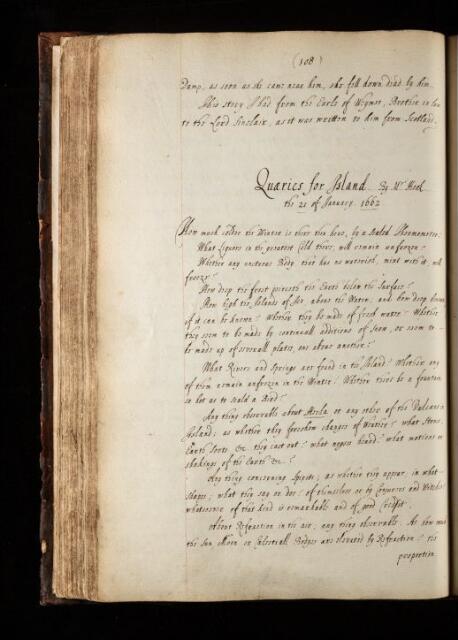 (108)
Damp, as soon as she came near him, she fell down dead by him.
This story I had from the Earle of Weymes, Brother in Law
to the Lord Sinclair, as it was written to him from Scotland.
Quæries for Island By Mr Hook
the 21 of January 1662
How much colder the Winter is there then here, by a Sealed Thermometer.
What Liquors in the greatest Cold there, will remain unfrozen?
Whether any unctuous Body, that has no waterish, mixt with it, will
freeze?
How deep the frost pierceth the Earth below the Surface?
How high the Islands of Ice, above the Water; and how deep
of it can be known? Whether they be made of fresh water? Whether
they seem to be made by continuall additions of Snow, or seem to
be made up of severall plates, one above another?
What Rivers and Springs are found in the Island? Whether any
of them remain unfrozen in the Winter? Whether there be a fountain
so hot as to scald a Bird?
Any thing observable about Hecla or any other of the Vulcans in
Island; as whether they foreshew changes of Weather? what Stones
Earth Soots &c. they cast out? what noyses heard? what motions or
shakings of the Earth &c.?
Any thing concerning Spirits; as whether they appear, in what
Shapes; what they say or doe: of themselves or by Conjurers and Witches
whatsoever of that kind is remarkable and of good Credit.
About Refraction in the air; any thing observable. As how much
the Sun, Moon or Celestiall Bodyes are elevated by Refraction? the
proportion